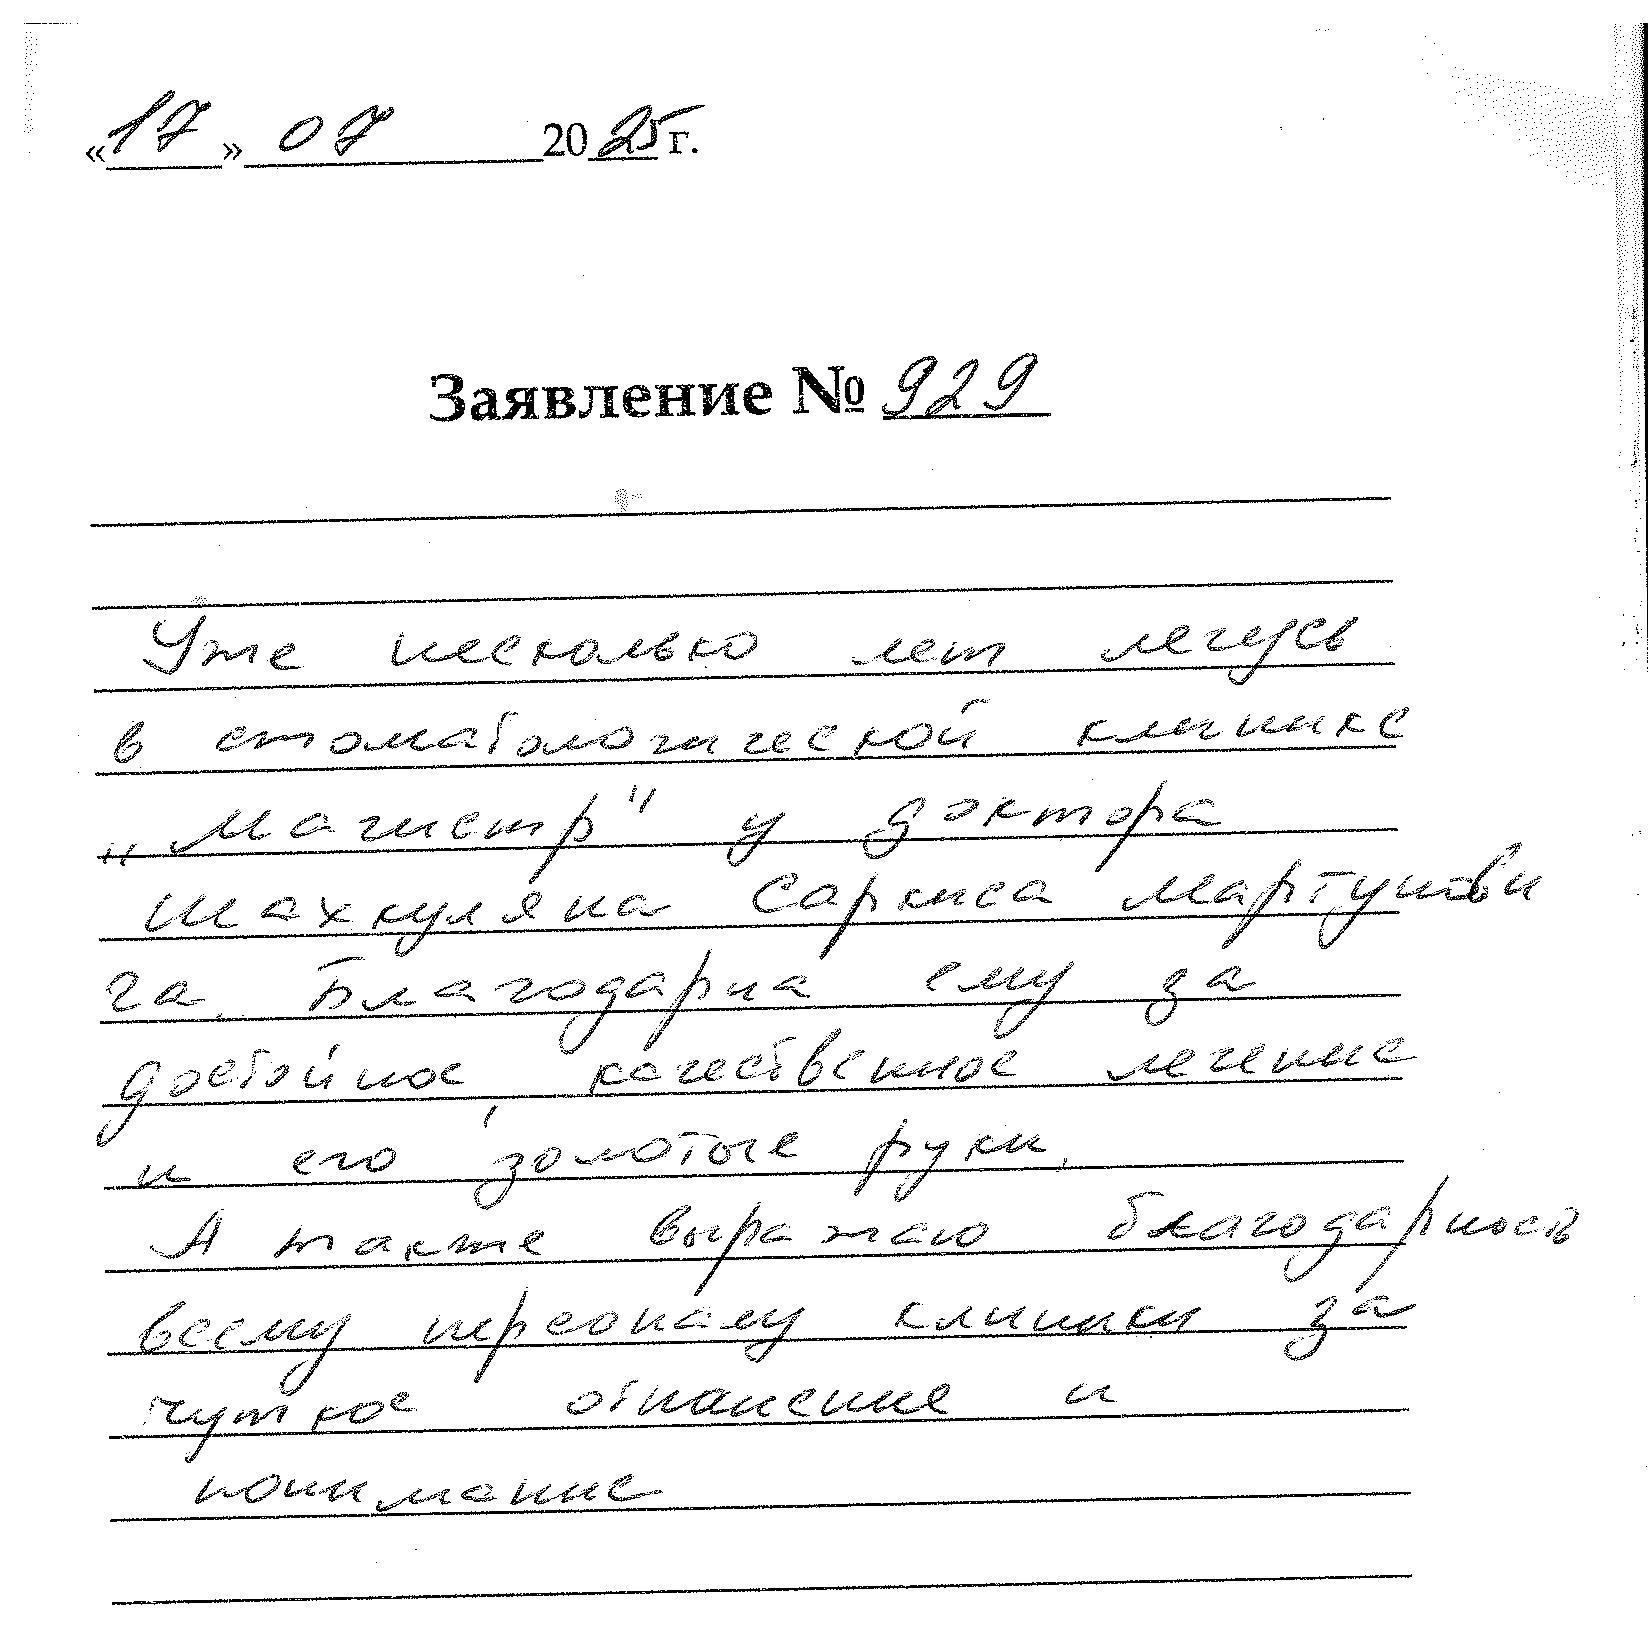 «17» 07 2025 г.
Заявление № 929
Уже несколько лет лечусь
в стоматологической клинике
„Магистр" у доктора
Шахкуляна Саркиса Мартунови
ча. Благодарна ему за
достойное, качественное лечение
и его золотые руки.
А также выражаю благодарность
всему персоналу клиники за
чуткое отношение и
понимание